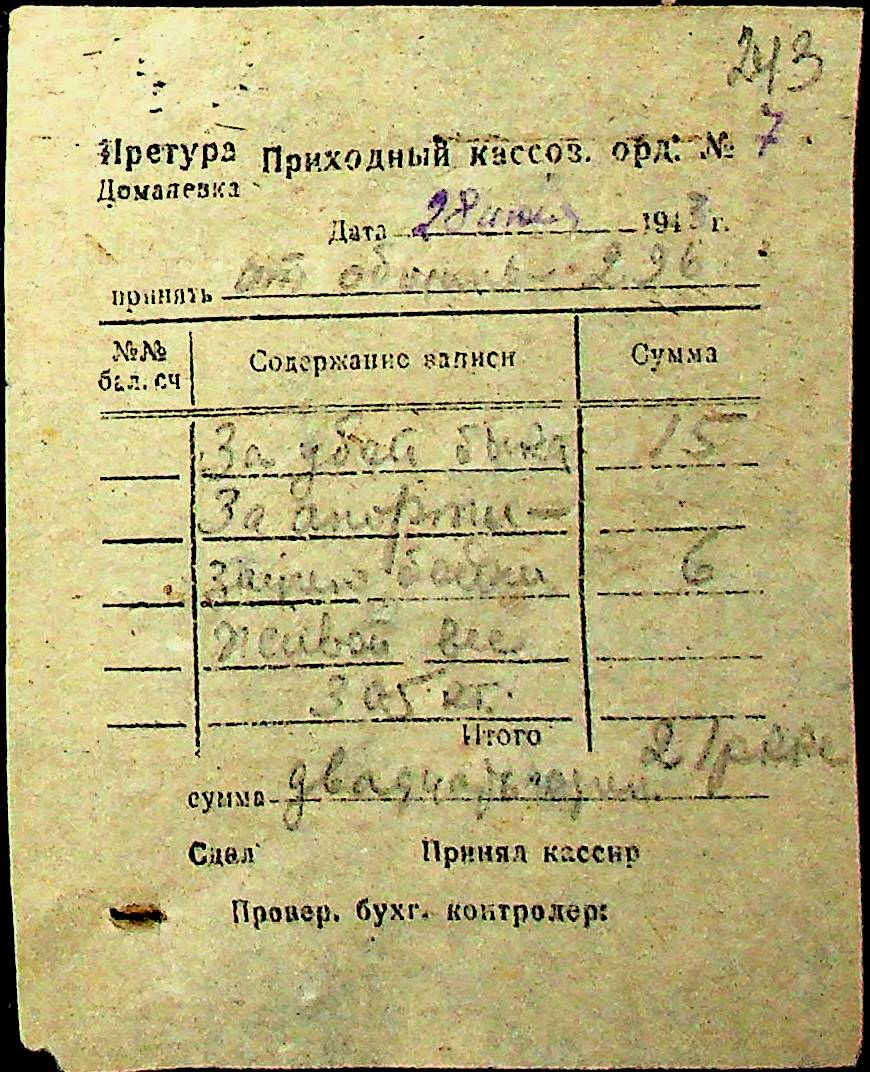 243
Претура Приходный кассов. орд. № 7
Доманевка
Дата 28 июня 1943 г.
принять от общины 226
№№ бал. сч Содержание записи Сумма
За убой быка 15
За аморти-
зацию бойни 6
Живой вес
305 кг.
Итого 21 ркке
сумма двадцать один
Сдел Принял кассир
Провер. бухг. контролер: